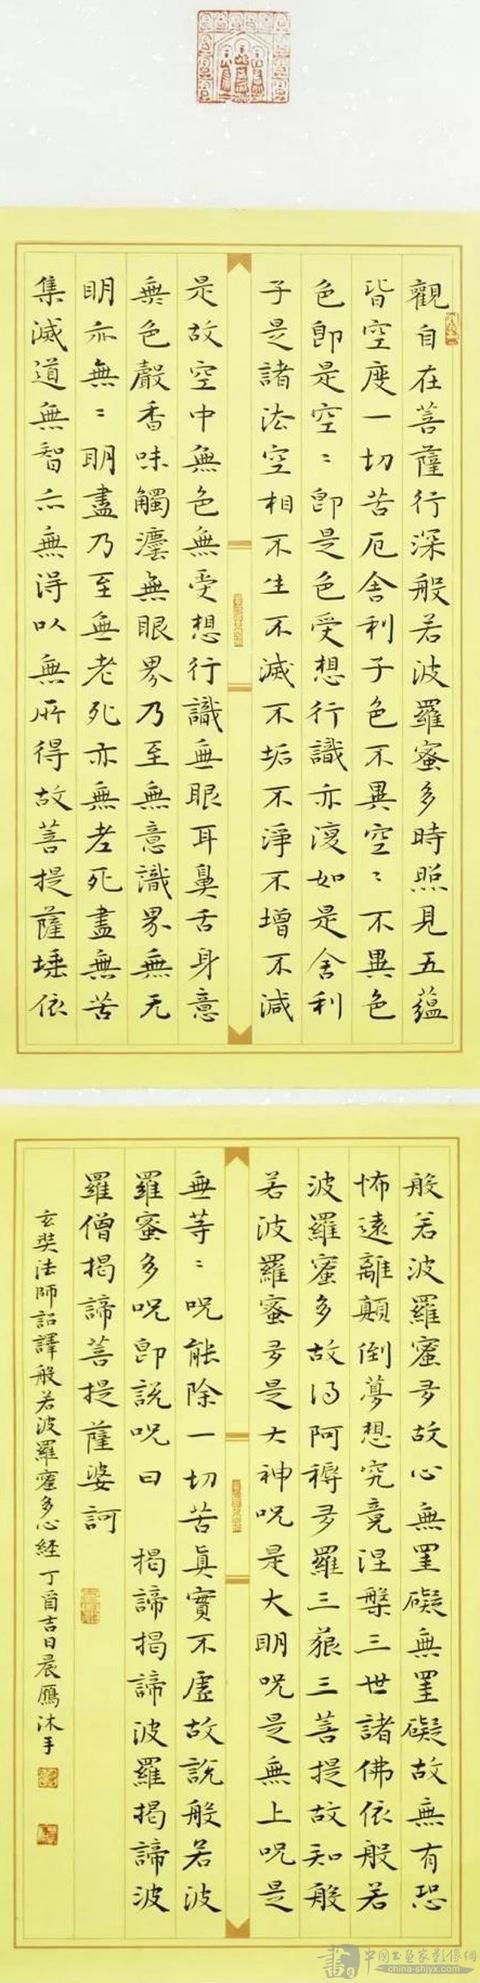 觀自在菩薩行深般若波羅蜜多時照見五蘊
皆空度一切苦厄舍利子色不異空〻不異色
色即是空〻即是色受想行識亦復如是舍利
子是諸法空相不生不滅不垢不淨不增不減
是故空中無色無受想行識無眼耳鼻舌身意
無色聲香味觸灋無眼界乃至無意識界無无
明亦無〻明盡乃至無老死亦無老死盡無苦
集滅道無智亦無得以無所得故菩提薩埵依
般若波羅蜜多故心無罣礙無罣礙故無有恐
怖遠離顛倒夢想究竟涅槃三世諸佛依般若
波羅蜜多故得阿耨多羅三藐三菩提故知般
若波羅蜜多是大神咒是大明咒是無上咒是
無等〻咒能除一切苦真實不虛故說般若波
羅蜜多咒即說咒曰 揭諦揭諦波羅揭諦波
羅僧揭諦菩提薩婆訶
玄奘法師詔譯般若波羅蜜多心經丁酉吉日晨鴈沐手
中国书画家影像网
china-shjyx.com